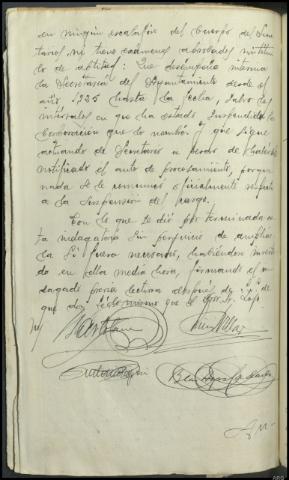 en ningún escalafón del Cuerpo de Secre
tarios, ni tiene exámenes aprobados ni títu
lo de aptitud: Que desempeña interina
la Secretaría del Ayuntamiento desde el
año 1925 hasta la fecha, salvo los
intervalos en que ha estado suspendida la
Corporación que lo nombró y que sigue
actuando de Secretario a pesar de habérsele
notificado el auto de procesamiento, porque
nada se le comunicó oficialmente respecto
a la suspensión del cargo.
Con lo que se dió por terminada es
ta indagatoria sin perjuicio de ampliar
la si fuera necesario, habiéndose inverti
do en ella media hora, firmando el in
dagado previa lectura después de S.Sª de
que doy fé